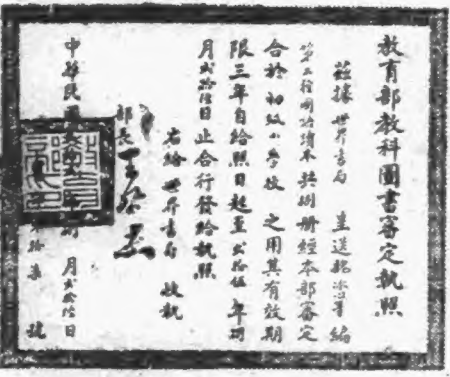 教育部教科圖書審定執照
茲據 世界書局 呈送魏冰心等編
第一種國語讀本 共捌册經本部審定
合於 初級小學校 之用其有效期
限三年自給照日起至貳拾伍年
月貳拾 日止合行發給執照
右給 世界書局 收執
部長王世杰
中華民國 月貳拾 日
號